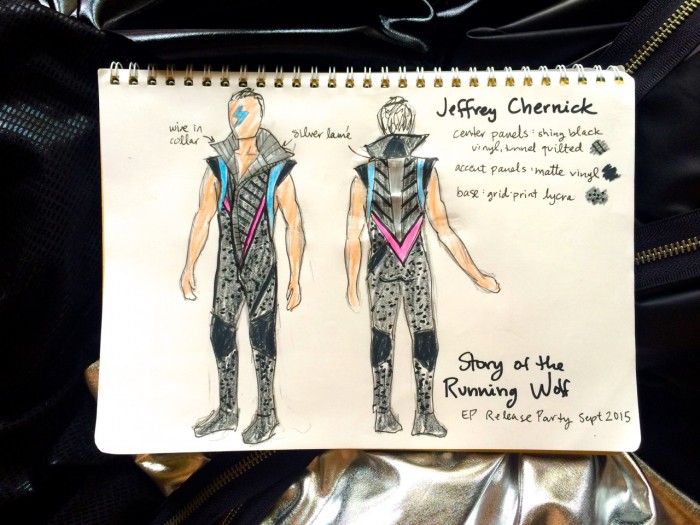 Jeffrey Chernick
wire in
collar
silver lamé
center panels: shiny black
vinyl, tunnel quilted
accent panels: matte vinyl
base: grid-print lycra
Story of the
Running Wolf
EP Release Party Sept 2015